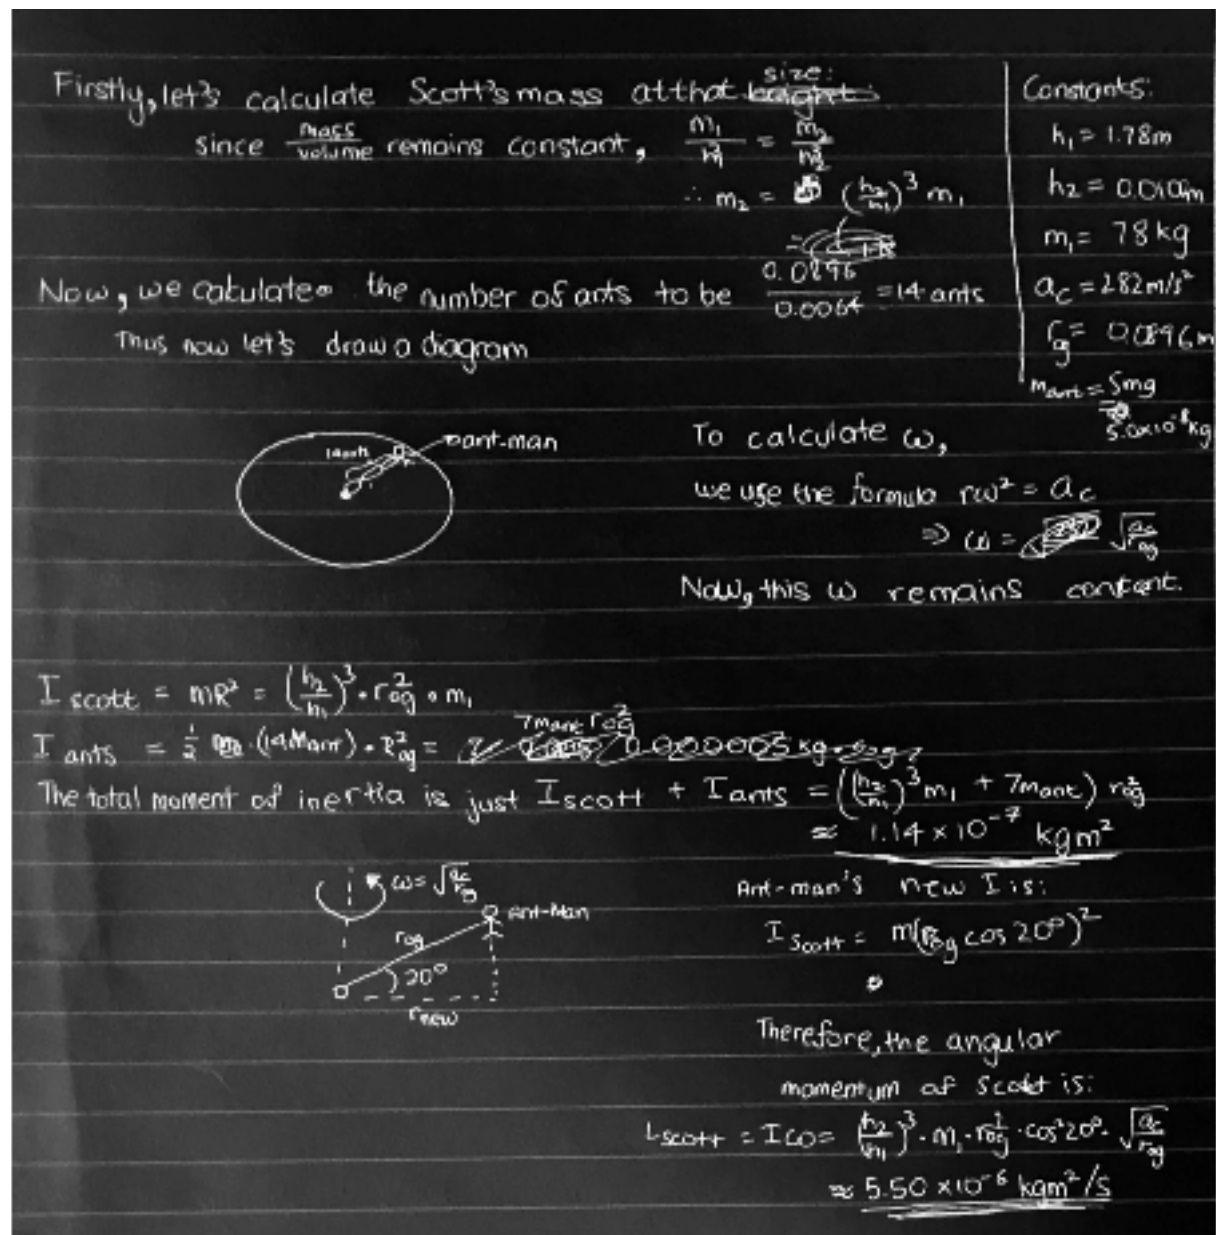 Firstly, let's calculate Scott's mass at that size:
since mass/volume remains constant, m₁/h₁³ = m₂/h₂³
∴ m₂ = (h₂/h₁)³ m₁
Now, we calculate the number of ants to be 0.0896/0.0064 = 14 ants
Thus now let's draw a diagram
Constants:
h₁ = 1.78m
h₂ = 0.010m
m₁ = 78 kg
a_c = 282 m/s²
r_og = 0.0896 m
m_ant = 5mg
14 ants
ant-man
To calculate ω,
we use the formula rω² = a_c
⇒ ω = √(a_c/r_og)
Now, this ω remains contant.
I scott = mR² = (h₂/h₁)³ • r_og² • m₁
I ants = 1/2 • (14 M_ant) • R_og² = 7m_ant r_og²
The total moment of inertia is just I scott + I ants = ((h₂/h₁)³ m₁ + 7m_ant) r_og²
≈ 1.14 × 10⁻⁷ kgm²
ω = √(a_c/r_og)
Ant-Man
r_og
20°
r_new
Ant-man's new I is:
I scott = m(r_og cos 20°)²
Therefore, the angular
momentum of Scott is:
L scott = Iω = (h₂/h₁)³ • m₁ • r_og² • cos²20° • √(a_c/r_og)
≈ 5.50 × 10⁻⁶ kgm²/s